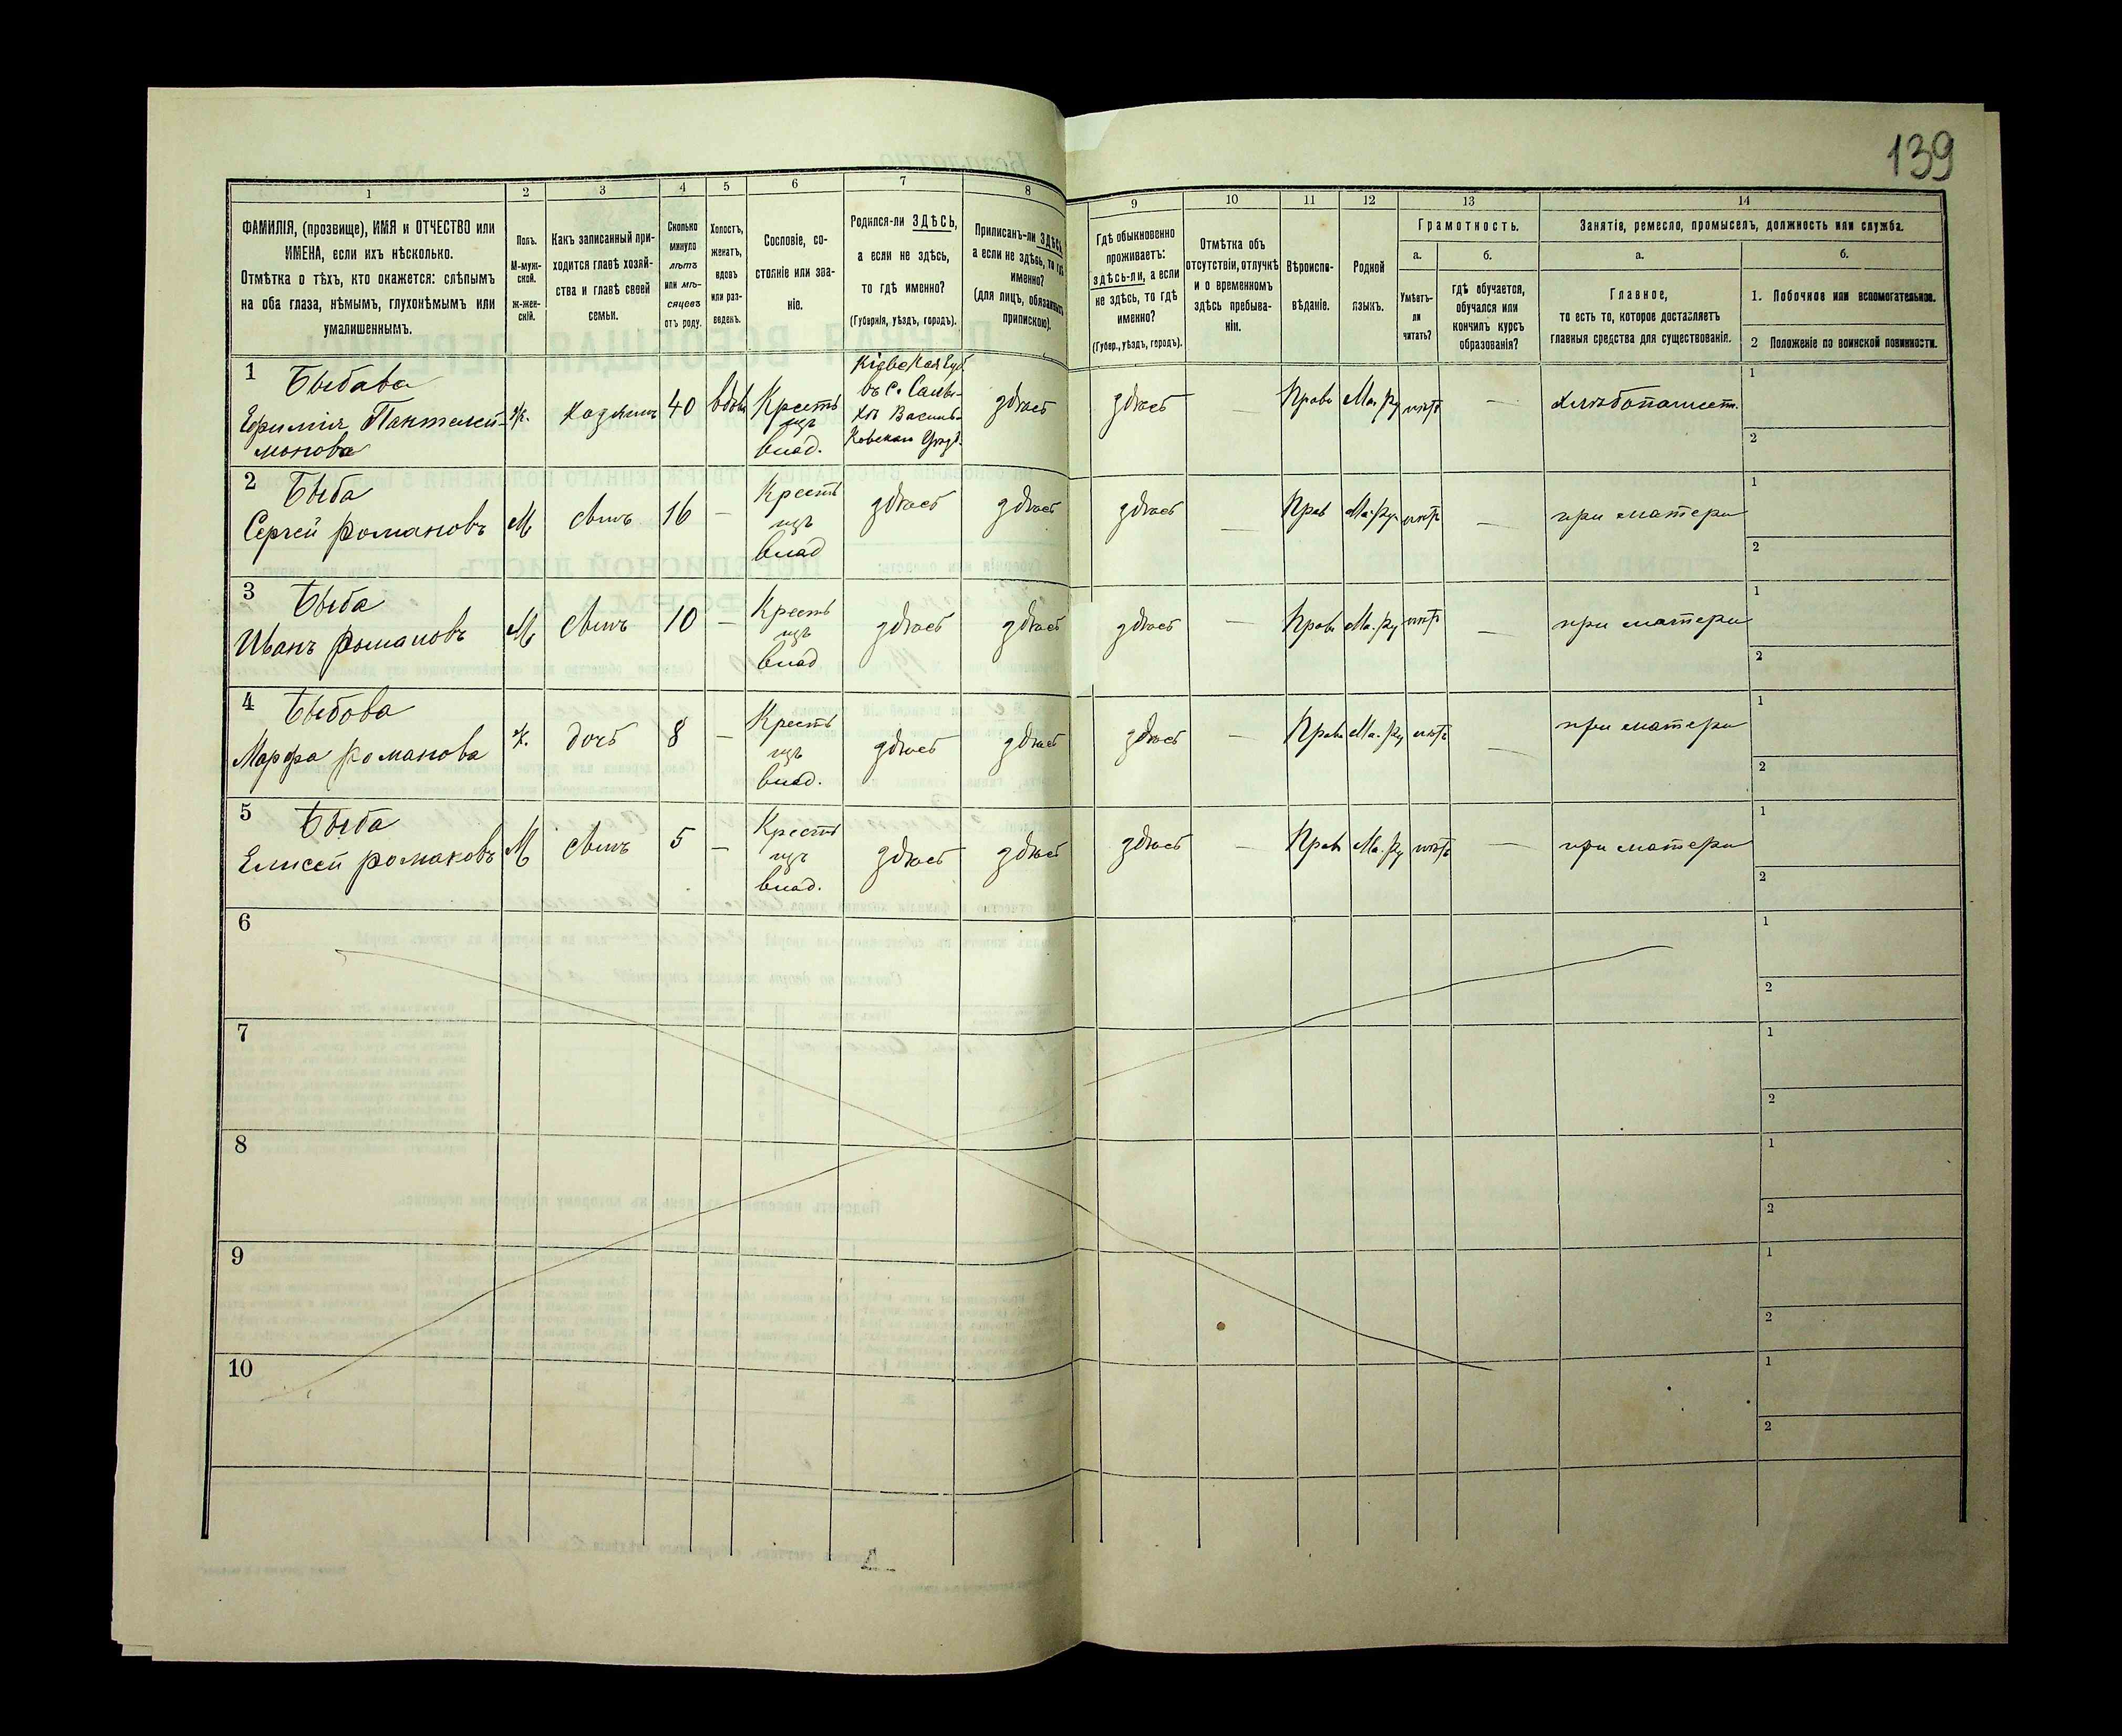 139
1 2 3 4 5 6 7 8 9 10 11 12 13 14
ФАМИЛІЯ, (прозвище), ИМЯ и ОТЧЕСТВО или
ИМЕНА, если ихъ нѣсколько.
Отмѣтка о тѣхъ, кто окажется: слѣпымъ
на оба глаза, нѣмымъ, глухонѣмымъ или
умалишеннымъ.
Полъ.
М-муж-
ской.
ж-жен-
скій.
Какъ записанный при-
ходится главѣ хозяй-
ства и главѣ своей
семьи.
Сколько
минуло
лѣтъ
или мѣ-
сяцевъ
отъ роду.
Холостъ,
женатъ,
вдовъ
или раз-
веденъ.
Сословіе, со-
стояніе или зва-
ніе.
Родился-ли ЗДѢСЬ,
а если не здѣсь,
то гдѣ именно?
(Губернія, уѣздъ, городъ).
Приписанъ-ли ЗДѢСЬ,
а если не здѣсь, то гдѣ
именно?
(для лицъ, обязанныхъ
припискою).
Гдѣ обыкновенно
проживаетъ:
здѣсь-ли, а если
не здѣсь, то гдѣ
именно?
(Губер., уѣздъ, городъ).
Отмѣтка объ
отсутствіи, отлучкѣ
и о временномъ
здѣсь пребыва-
ніи.
Вѣроиспо-
вѣданіе.
Родной
языкъ.
Грамотность.
а.
Умѣетъ-
ли
читать?
б.
гдѣ обучается,
обучался или
кончилъ курсъ
образованія?
Занятія, ремесло, промыселъ, должность или служба.
а.
Главное,
то есть то, которое доставляетъ
главныя средства для существованія.
б.
1. Побочное или вспомогательное.
2 Положеніе по воинской повинности.
1 Быбава
Ефимія Пантелей-
монова
ж.
40
вдова
Крестъ
изъ
влад.
Кіевская Губ.
въ с.
Василь-
ковскаго Уѣзд.
здѣсь
здѣсь
—
Прав
Ма. Ру
нѣтъ
—
хлѣбопашест.
1
2
2 Быба
Сергей романовъ
М
сынъ
16
—
Крестъ
изъ
влад
здѣсь
здѣсь
здѣсь
—
Прав
Ма. Ру
нѣтъ
—
при матери
1
2
3 Быба
Иванъ романовъ
М
сынъ
10
—
Крестъ
изъ
влад
здѣсь
здѣсь
здѣсь
—
Прав
Ма. Ру
нѣтъ
—
при матери
1
2
4 Быбова
Марфа романова
ж.
дочь
8
—
Крестъ
изъ
влад.
здѣсь
здѣсь
здѣсь
—
Прав
Ма. Ру
нѣтъ
—
при матери
1
2
5 Быба
Елисей романовъ
М
сынъ
5
—
Крестъ
изъ
влад.
здѣсь
здѣсь
здѣсь
—
Прав
Ма. Ру
нѣтъ
—
при матери
1
2
6
1
2
7
1
2
8
1
2
9
1
2
10
1
2